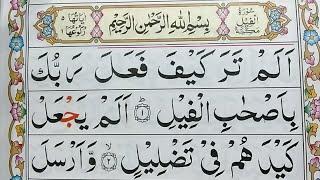 سُورَةُ الْفِيلِ مَكِّيَّةٌ
بِسْمِ اللّٰهِ الرَّحْمٰنِ الرَّحِيْمِ
اٰيَاتُهَا ٥ رُكُوْعُهَا ١
اَلَمْ تَرَ كَيْفَ فَعَلَ رَبُّكَ
بِاَصْحٰبِ الْفِيْلِ ؕ ﴿۱﴾ اَلَمْ يَجْعَلْ
كَيْدَهُمْ فِيْ تَضْلِيْلٍ ۙ ﴿۲﴾ وَّاَرْسَلَ